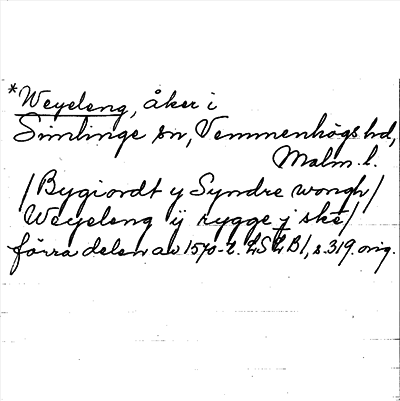 *Weyeleng, åker i
Simlinge sn, Vemmenhögs hd,
Malm. l.
/Bygiordt y Syndre wongh/
Weyeleng ij rygge j skē/
förra delen av 1570-t. LSLB/, s. 319 orig.